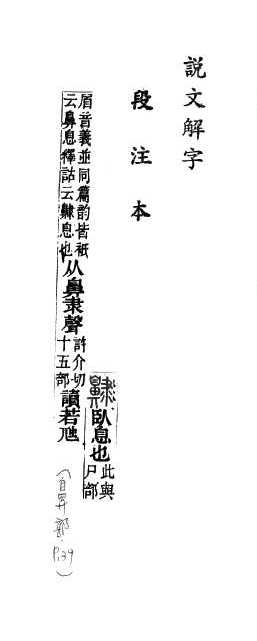 說文解字
段注本
齂臥息也此與尸部
眉音義並同篇韵皆祇云鼻息釋詁云齂息也从鼻隶聲許介切十五部讀若虺
(鼻部 P.139)